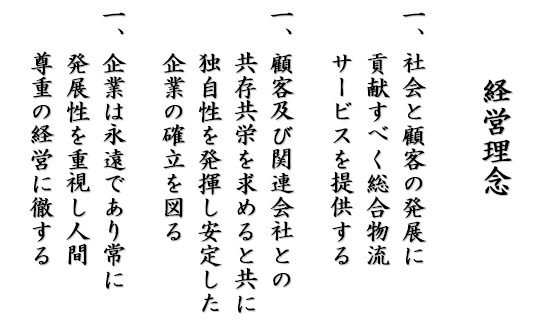 経営理念
一、社会と顧客の発展に
貢献すべく総合物流
サービスを提供する
一、顧客及び関連会社との
共存共栄を求めると共に
独自性を発揮し安定した
企業の確立を図る
一、企業は永遠であり常に
発展性を重視し人間
尊重の経営に徹する